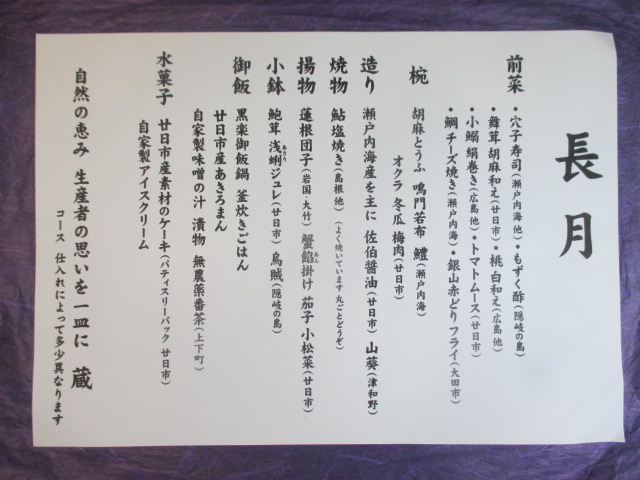 長月
前菜 ・穴子寿司（瀬戸内海 他）・もずく酢（隠岐の島）
・舞茸 胡麻和え（廿日市）・桃 白和え（広島 他）
・小鰯 絹巻き（広島 他）・トマトムース（廿日市）
・鯛 チーズ焼き（瀬戸内海）・銀山赤どり フライ（大田市）
椀 胡麻とうふ 鳴門若布 鱧（瀬戸内海）
オクラ 冬瓜 梅肉（廿日市）
造り 瀬戸内海産を主に 佐伯醤油（廿日市） 山葵（津和野）
焼物 鮎塩焼き（島根 他）（よく焼いています 丸ごとどうぞ）
揚物 蓮根団子（岩国・大竹） 蟹餡掛け 茄子 小松菜（廿日市）
小鉢 鮑茸 浅蜊ジュレ（廿日市） 烏賊（隠岐の島）
御飯 黒楽御飯鍋 釜炊きごはん
廿日市産あきろまん
自家製味噌の汁 漬物 無農薬番茶（上下町）
水菓子 廿日市産素材のケーキ（パティスリーパック 廿日市）
自家製アイスクリーム
自然の恵み 生産者の思いを一皿に 蔵
コース 仕入れによって多少異なります